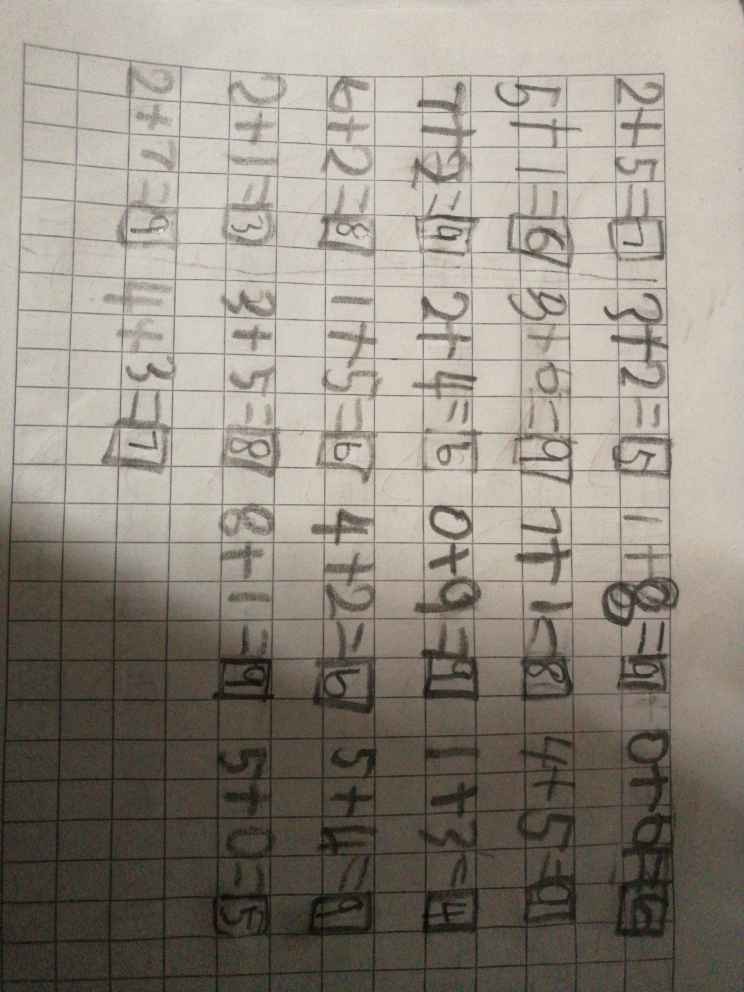 2+5=7 3+2=5 1+8=9 0+6=6
5+1=6 3+6=9 7+1=8 4+5=9
7+2=9 2+4=6 0+9=9 1+3=4
6+2=8 1+5=6 4+2=6 5+4=9
2+1=3 3+5=8 8+1=9 5+0=5
2+7=9 4+3=7